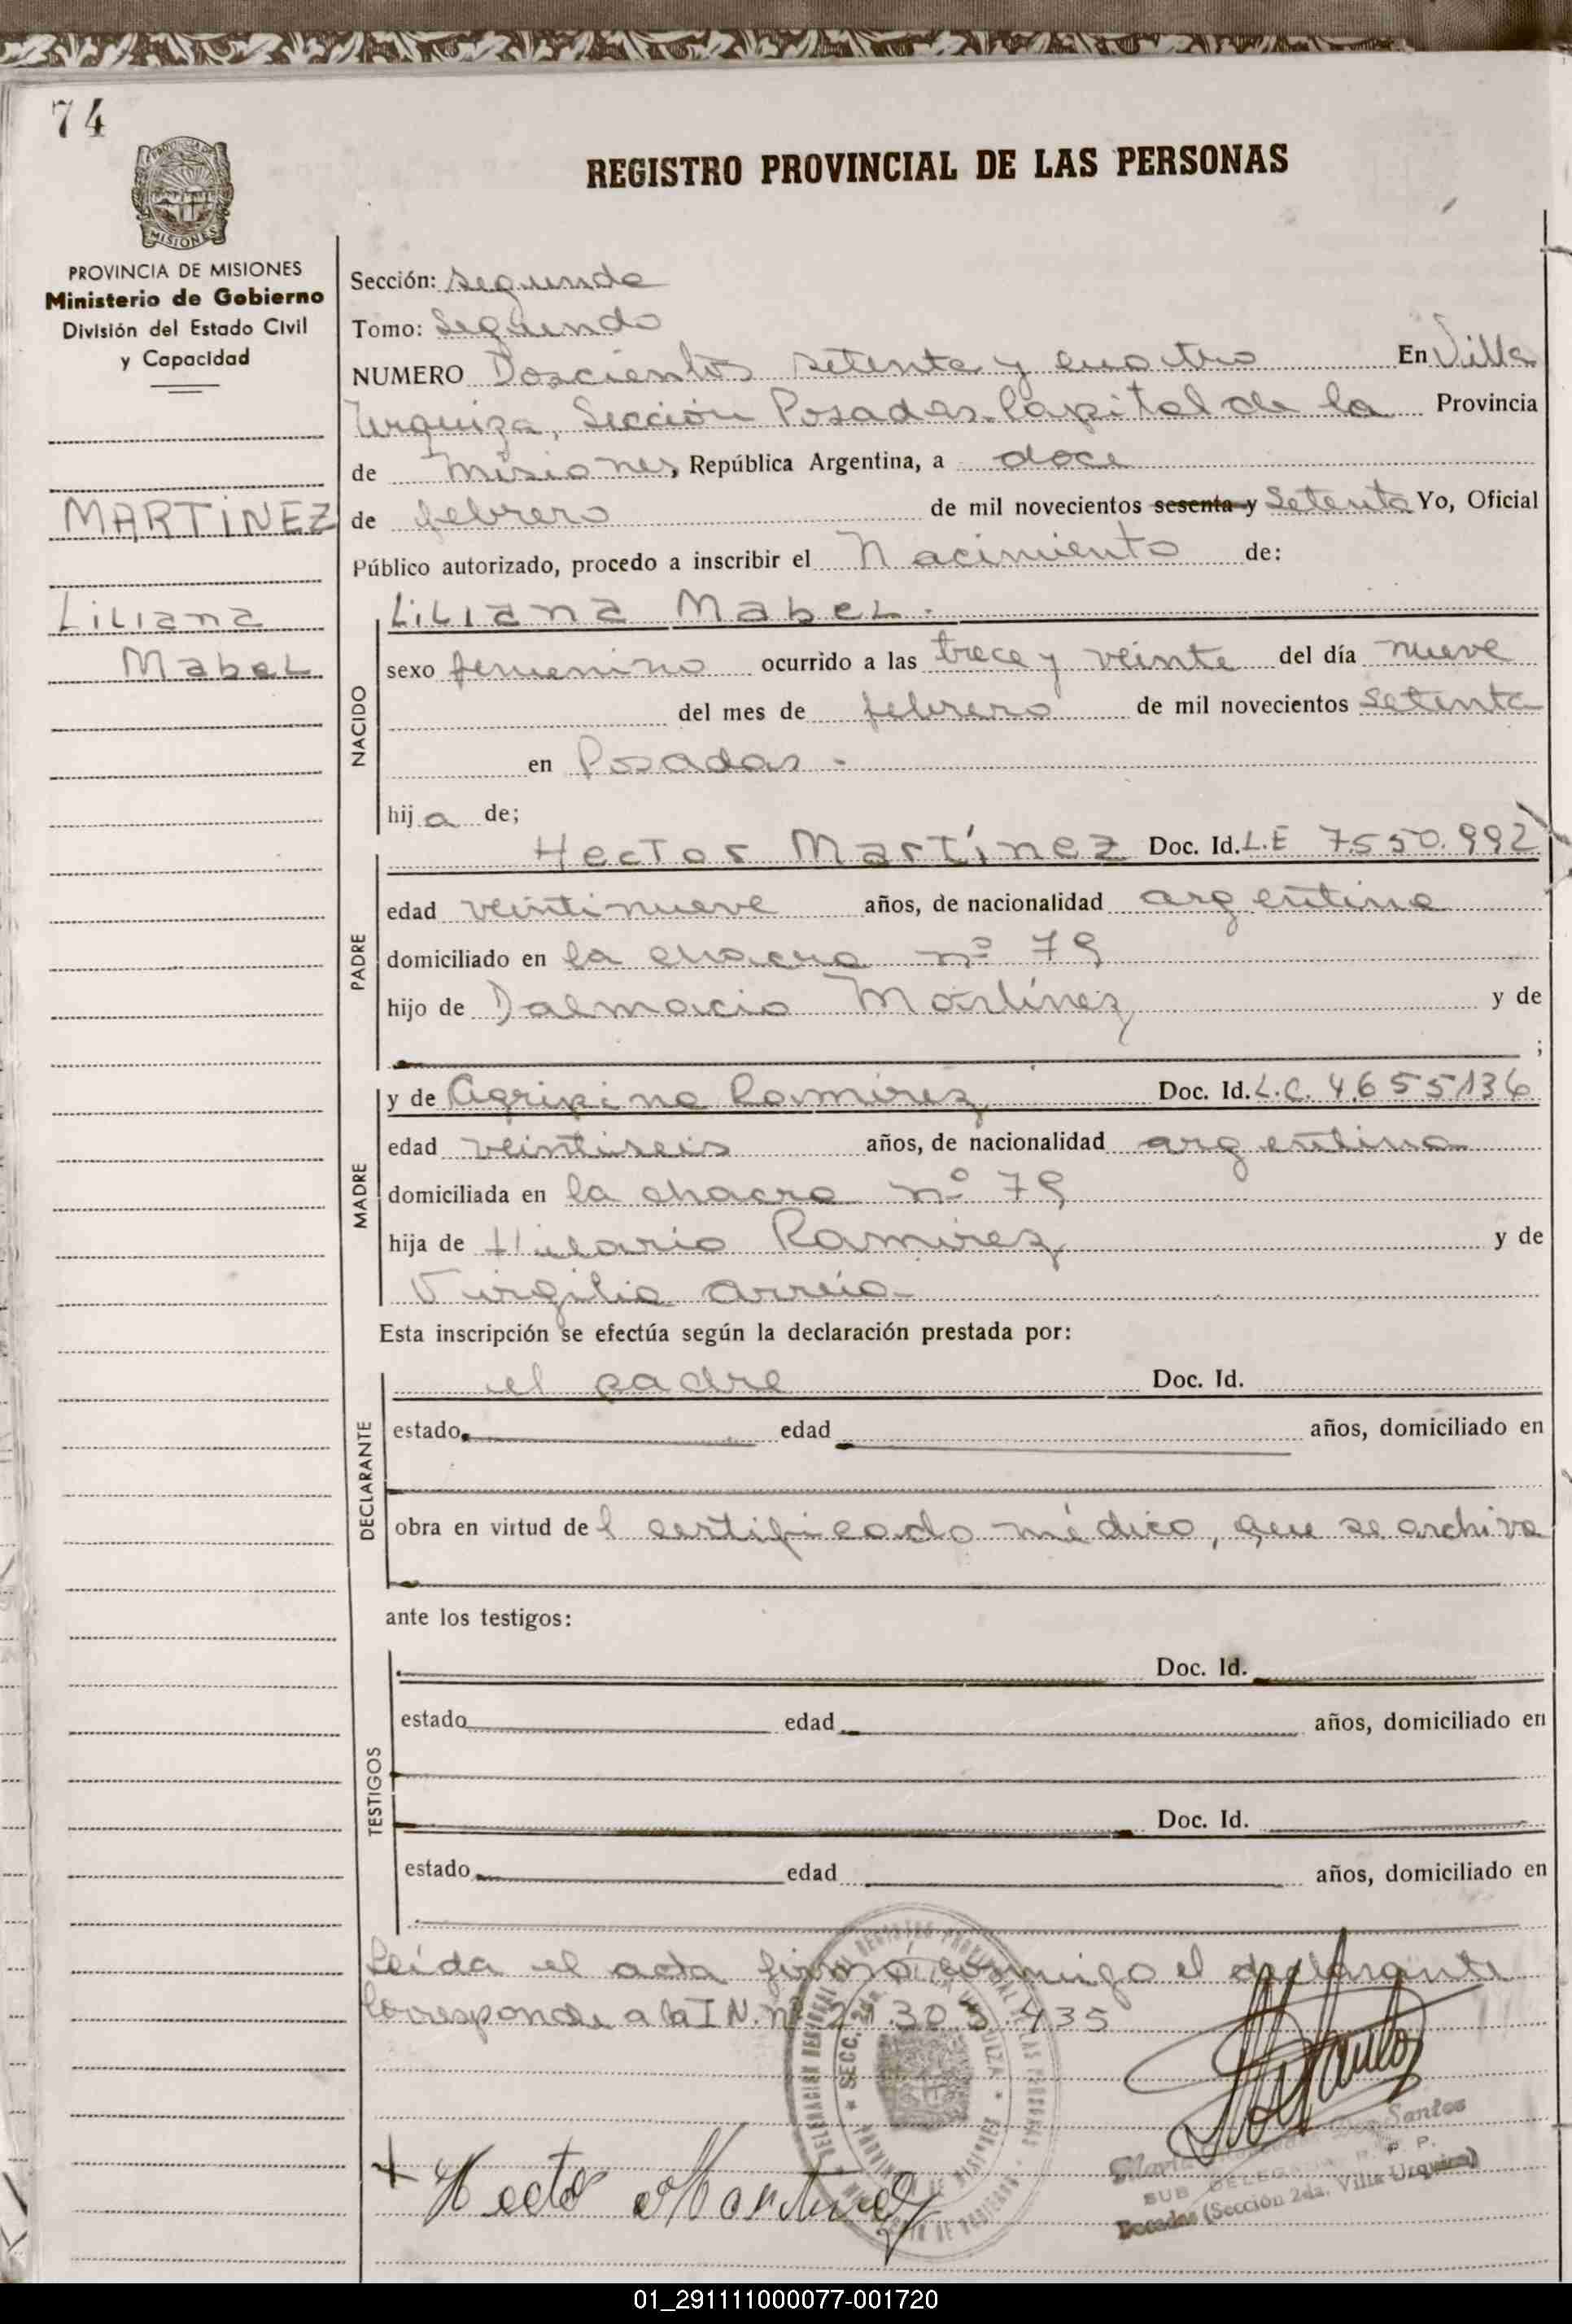 74
REGISTRO PROVINCIAL DE LAS PERSONAS
MISIONES
PROVINCIA DE MISIONES
Ministerio de Gobierno
División del Estado Civil
y Capacidad
MARTINEZ
Liliana
Mabel
Sección: segunda
Tomo: Segundo
NUMERO Doscientos setenta y cuatro En Villa
Urquiza, Sección Posadas. Capital de la Provincia
de Misiones, República Argentina, a doce
de febrero de mil novecientos sesenta y Setenta Yo, Oficial
Público autorizado, procedo a inscribir el Nacimiento de:
Liliana Mabel.-
NACIDO
sexo femenino ocurrido a las trece y veinte del día nueve
del mes de febrero de mil novecientos setenta
en Posadas.-
hija de;
PADRE
Hector Martínez Doc. Id. L.E 7.550.992
edad veintinueve años, de nacionalidad argentina
domiciliado en la chacra nº 79
hijo de Dalmacio Martínez y de
;
MADRE
y de Agripina Ramirez Doc. Id. L.C. 4.655136
edad veintiseis años, de nacionalidad argentina
domiciliada en la chacra nº 79
hija de Hilario Ramirez y de
Virgilia
Esta inscripción se efectúa según la declaración prestada por:
DECLARANTE
el padre Doc. Id.
estado edad años, domiciliado en
obra en virtud del certificado médico, que se archiva
ante los testigos:
TESTIGOS
Doc. Id.
estado edad años, domiciliado en
Doc. Id.
estado edad años, domiciliado en
Leída el acta firmó conmigo el declarante
Corresponde a la I.N. nº 21.303.435
Hector Martinez
Dos Santos
SUB DELEGADA R. P. P.
Posadas (Sección 2da. Villa Urquiza)
01_291111000077-001720